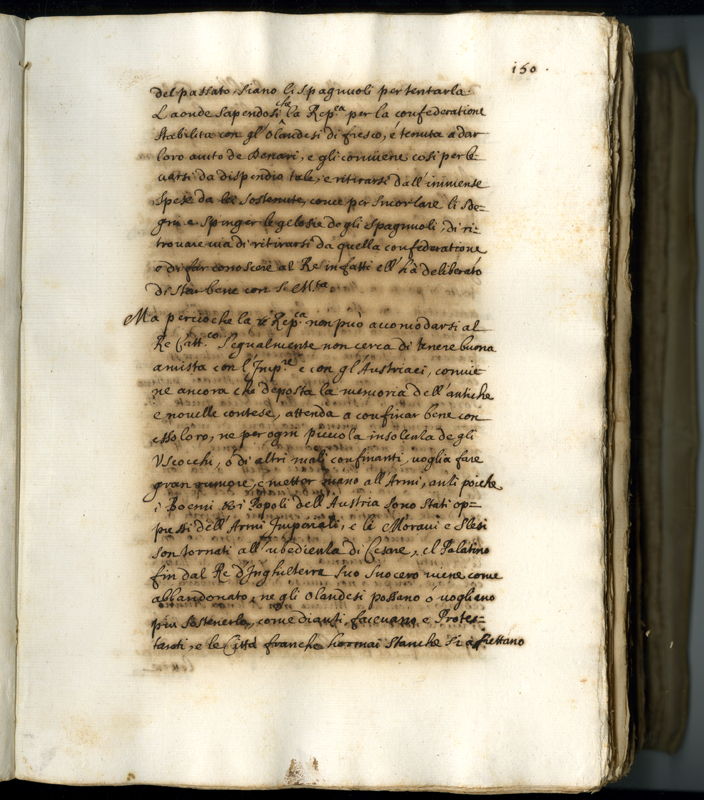 150.
del passato, siano li spagnuoli per tentarla.
Laonde sapendosi che la Rep.ca per la confederatione
stabilita con gl'Olandesi di fresco, è tenuta a dar
loro aiuto de Denari, e gli conviene così per le=
varsi da dispendio tale, e ritirarsi dall'immense
spese da lei sostenute, come per
gni e spinger le gelosie degli spagnuoli, di ri=
trovare via di ritirarsi da quella confederatione
o di far conoscere al Re in fatti ell'hà deliberato
di star bene con S. M.ta
Ma percioche la Rep.ca non può accomodarsi al
Re Catt.co s'egualmente non cerca di tenere buona
amista con l'Imp.re e con gl'Austriaci, convie
ne ancora che deposta la memoria dell'antiche
e novelle contese, attenda a confinar bene con
esso loro, ne per ogni piccola insolenza de gli
Uscocchi, ò di altri mali confinanti voglia fare
gran rumore, e metter mano all'Armi, anzi poiche
i Boemi et i Popoli dell'Austria sono stati op=
pressi dell'Armi Imperiali, e le Moravi e Slesi
son tornati all'ubedienza di Cesare, el Palatino
fin dal Re d'Inghilterra suo suocero viene come
abbandonato, ne gli Olandesi possano o vogliano
più sostenerlo, come dianzi facevano e Protes=
tanti, e le Città franche hormai stanche si affrettano